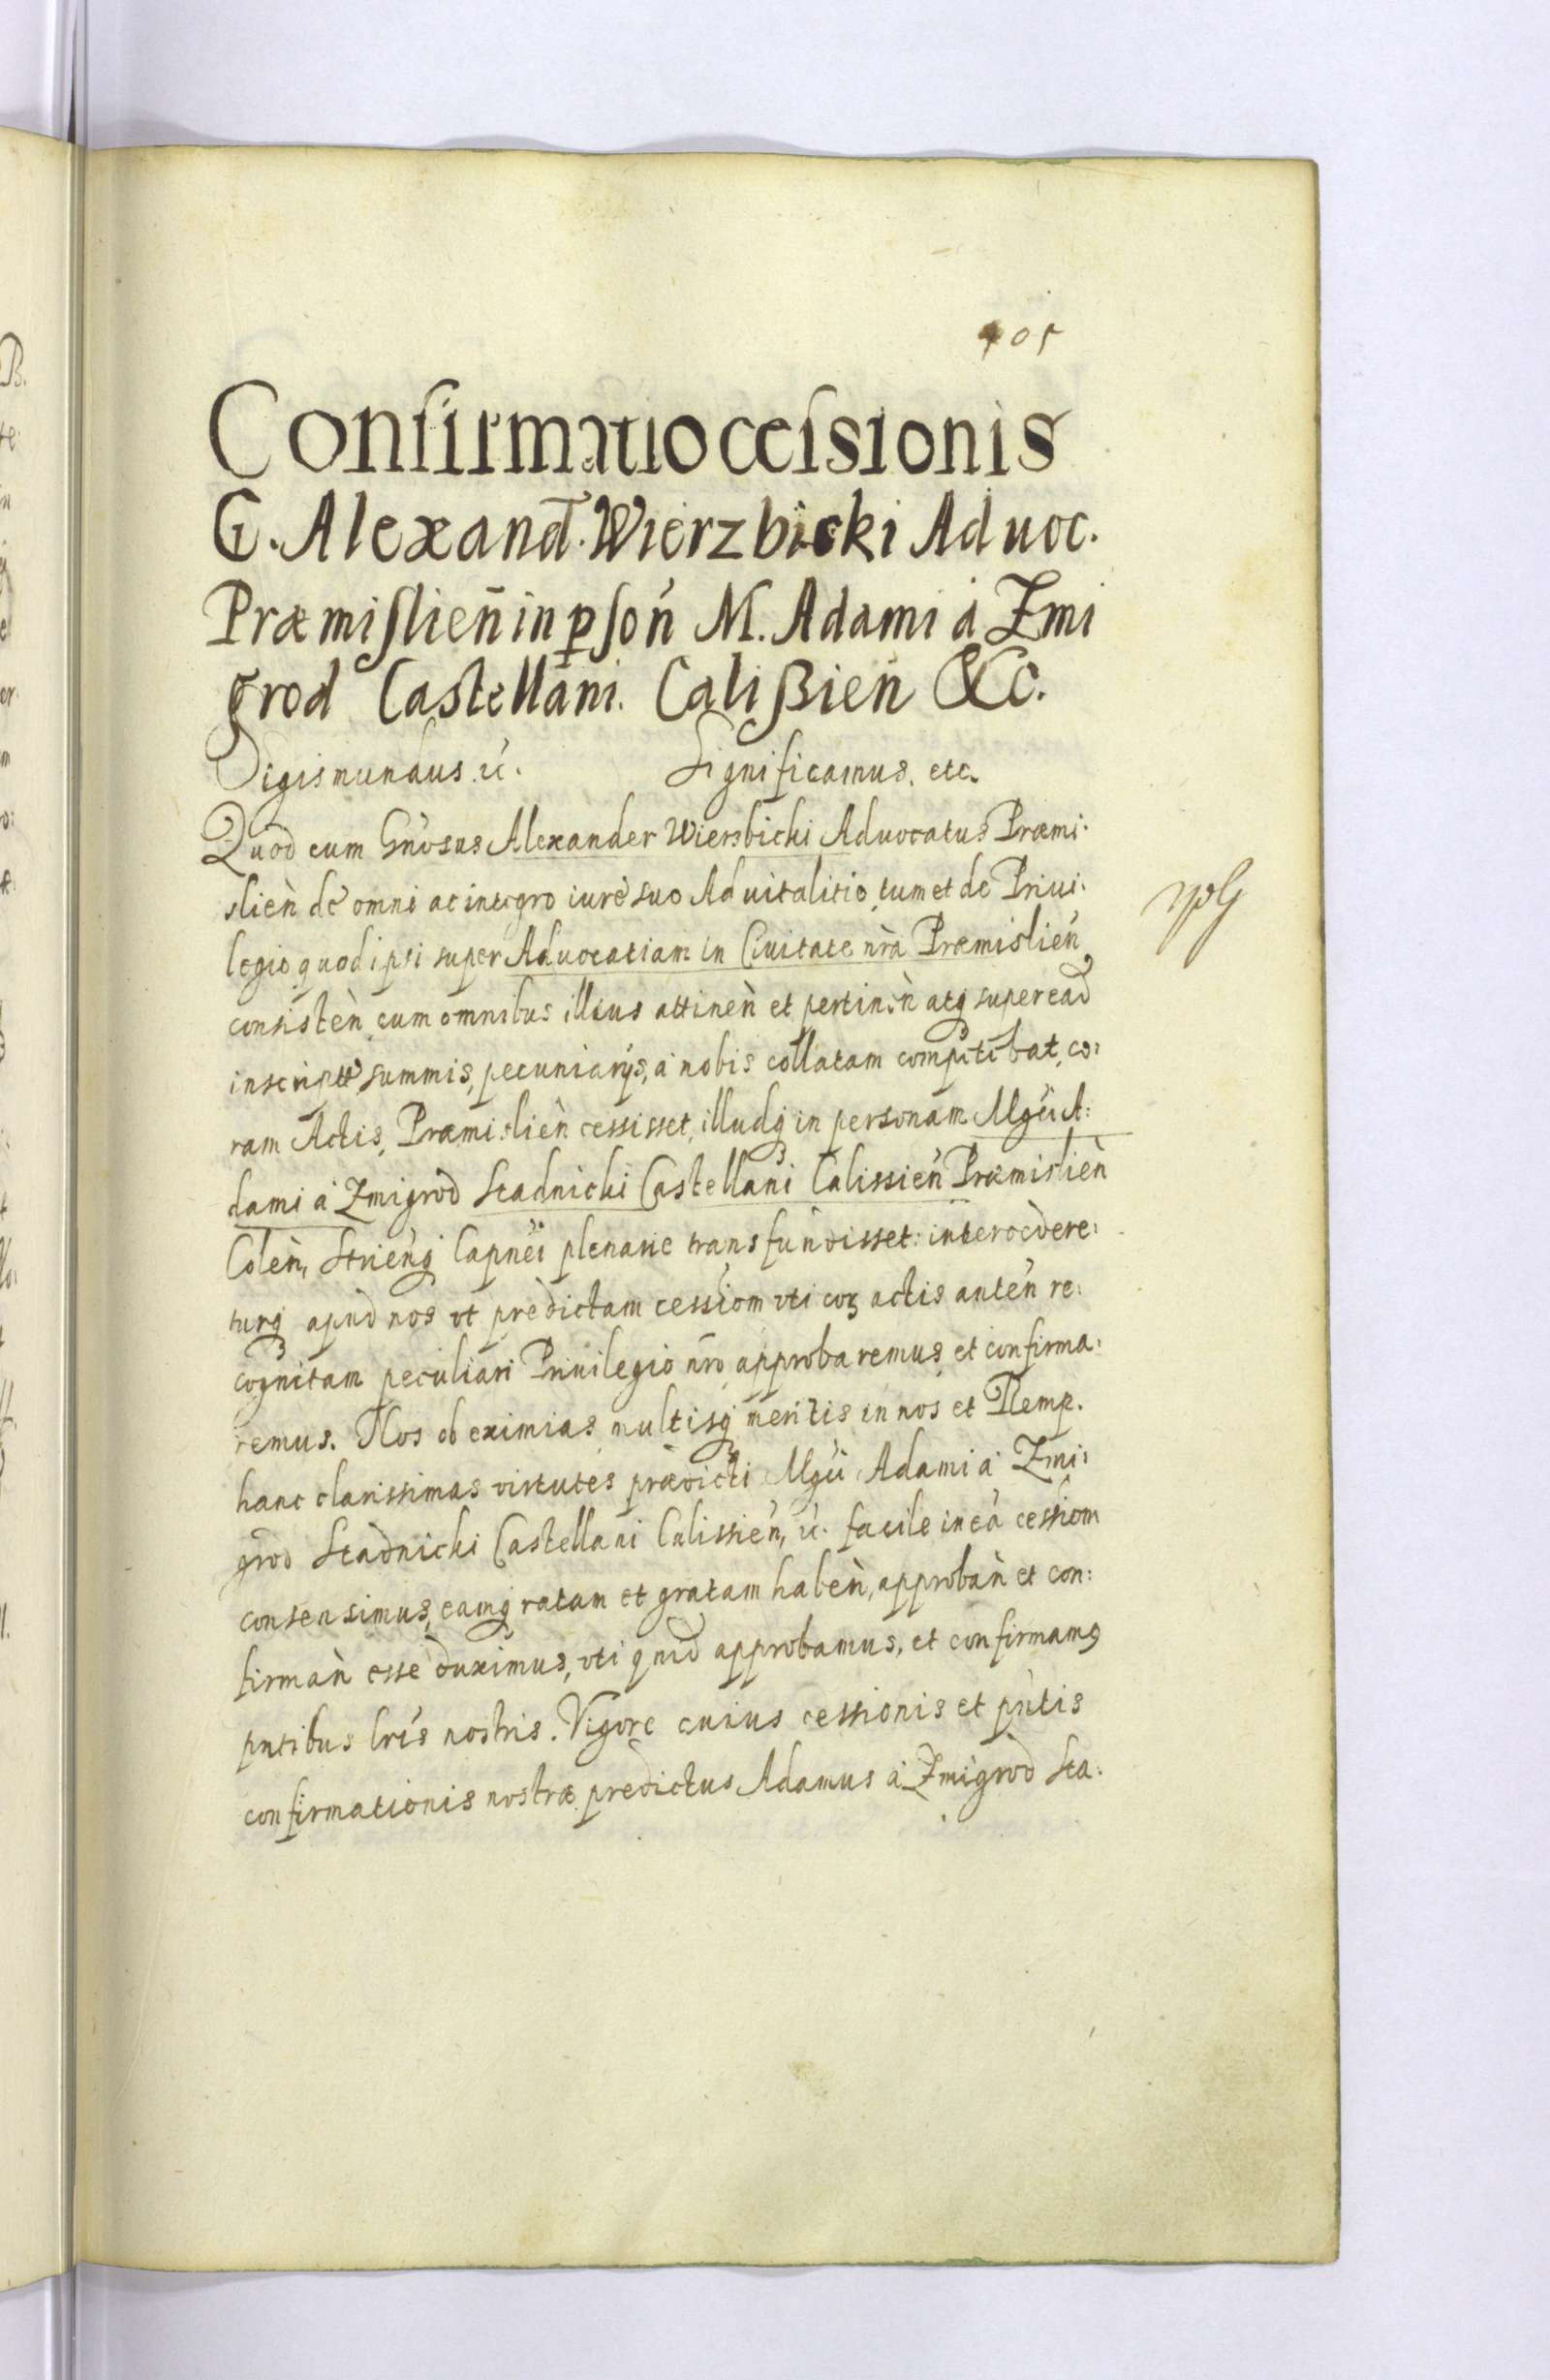 405
Confirmatio cessionis
G. Alexand. Wierzbicki Aduoc.
Præmislien̄ in p̱son̄ M. Adami á Zmi
grod Castellani. Calißien̄ &c.
Sigismundus. &. Significamus. etc.
Quod cum Gn̄osus Alexander Wiersbicki Aduocatus Præmi:
slien̄ de omni ac integro iure suo Aduitalitio, tum et de Priui:
legio quod ipsi super Aduocatiam in Ciuitate nr̄a Præmislien̄
consisten̄ cum omnibus illius attinen̄ et pertinen̄ atq̨ super ead
inscriptt summis, pecuniarijs, á nobis collatam competebat, co:
ram Actis, Præmislien̄ cessisset, illudq̨ in personam Mgci A:
dami á Zmigrod Stadnicki Castellani Calissien̄ Præmislien̄
Colen̄, Strien̄q̨ Capnei plenarie transfundisset: intercedere:
turq̨ apud nos vt predictam cessiom vti corꝫ actis anten̄ re:
cognitam peculiari Priuilegio nr̄o approbaremus et confirma:
remus. Nos ob eximias multisq̨ meritis in nos et Remp.
hanc clarissimas virtutes prædicti Mgci Adami á Zmi:
grod Stadnicki Castellani Calissien̄, &. facile in eá cessiom
consensimus, eamq̨ ratam et gratam haben̄, approban̄ et con:
firman̄ esse duximus, vti quid approbamus, et confirmamꝰ
pn̄tibus lr̄is nostris. Vigore cuius cessionis et pn̄tis
confirmationis nostræ predictus Adamus á Zmigrod Sta: